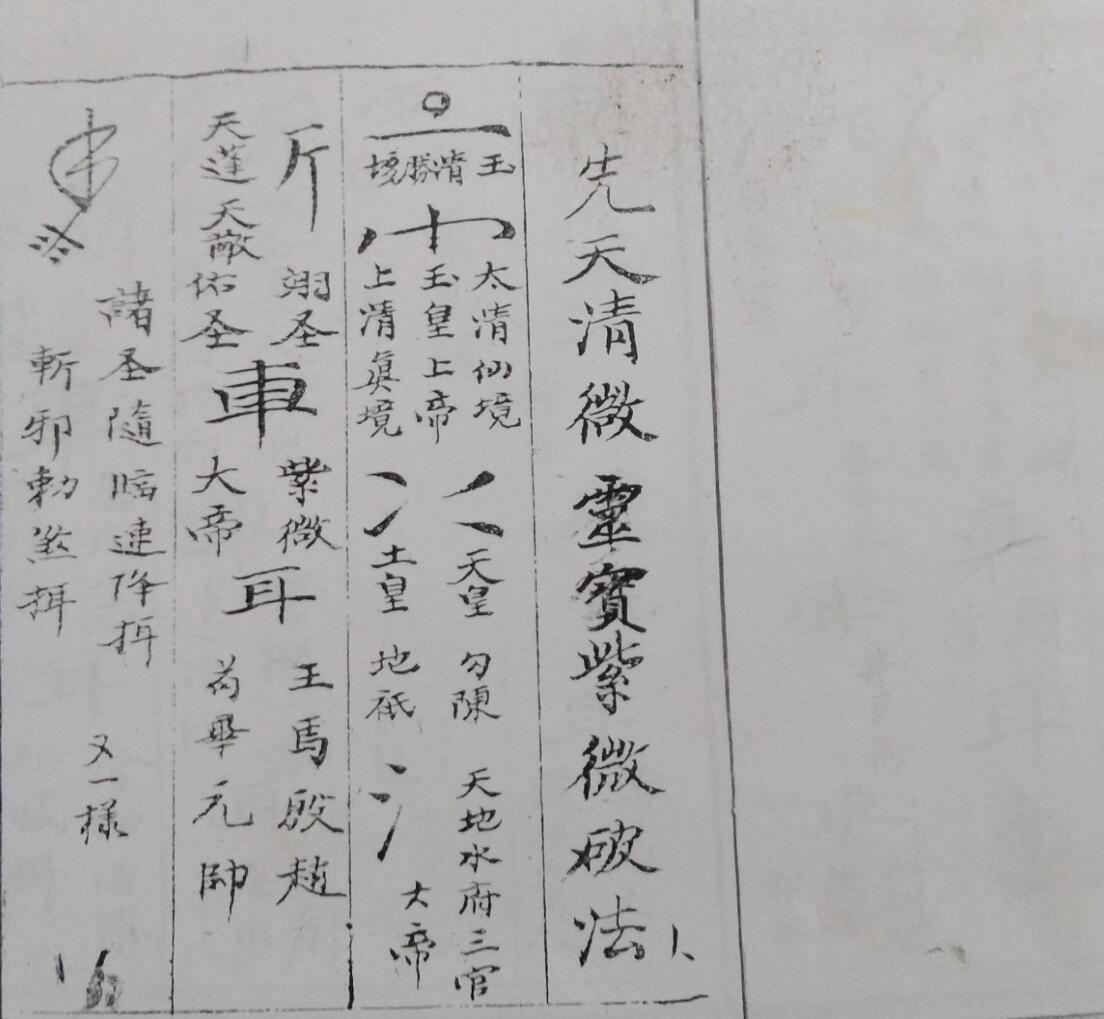 先天清微靈寶紫微破法
玉清勝境
太清仙境
玉皇上帝
上清真境
天皇 勾陳 天地水府三官
土皇 地祇 大帝
斤 翊圣 紫微 王馬殷趙
車 耳
天蓬天敵佑圣 大帝 苟畢元帥
諸圣隨临速降挕
斬邪勅煞挕
又一様